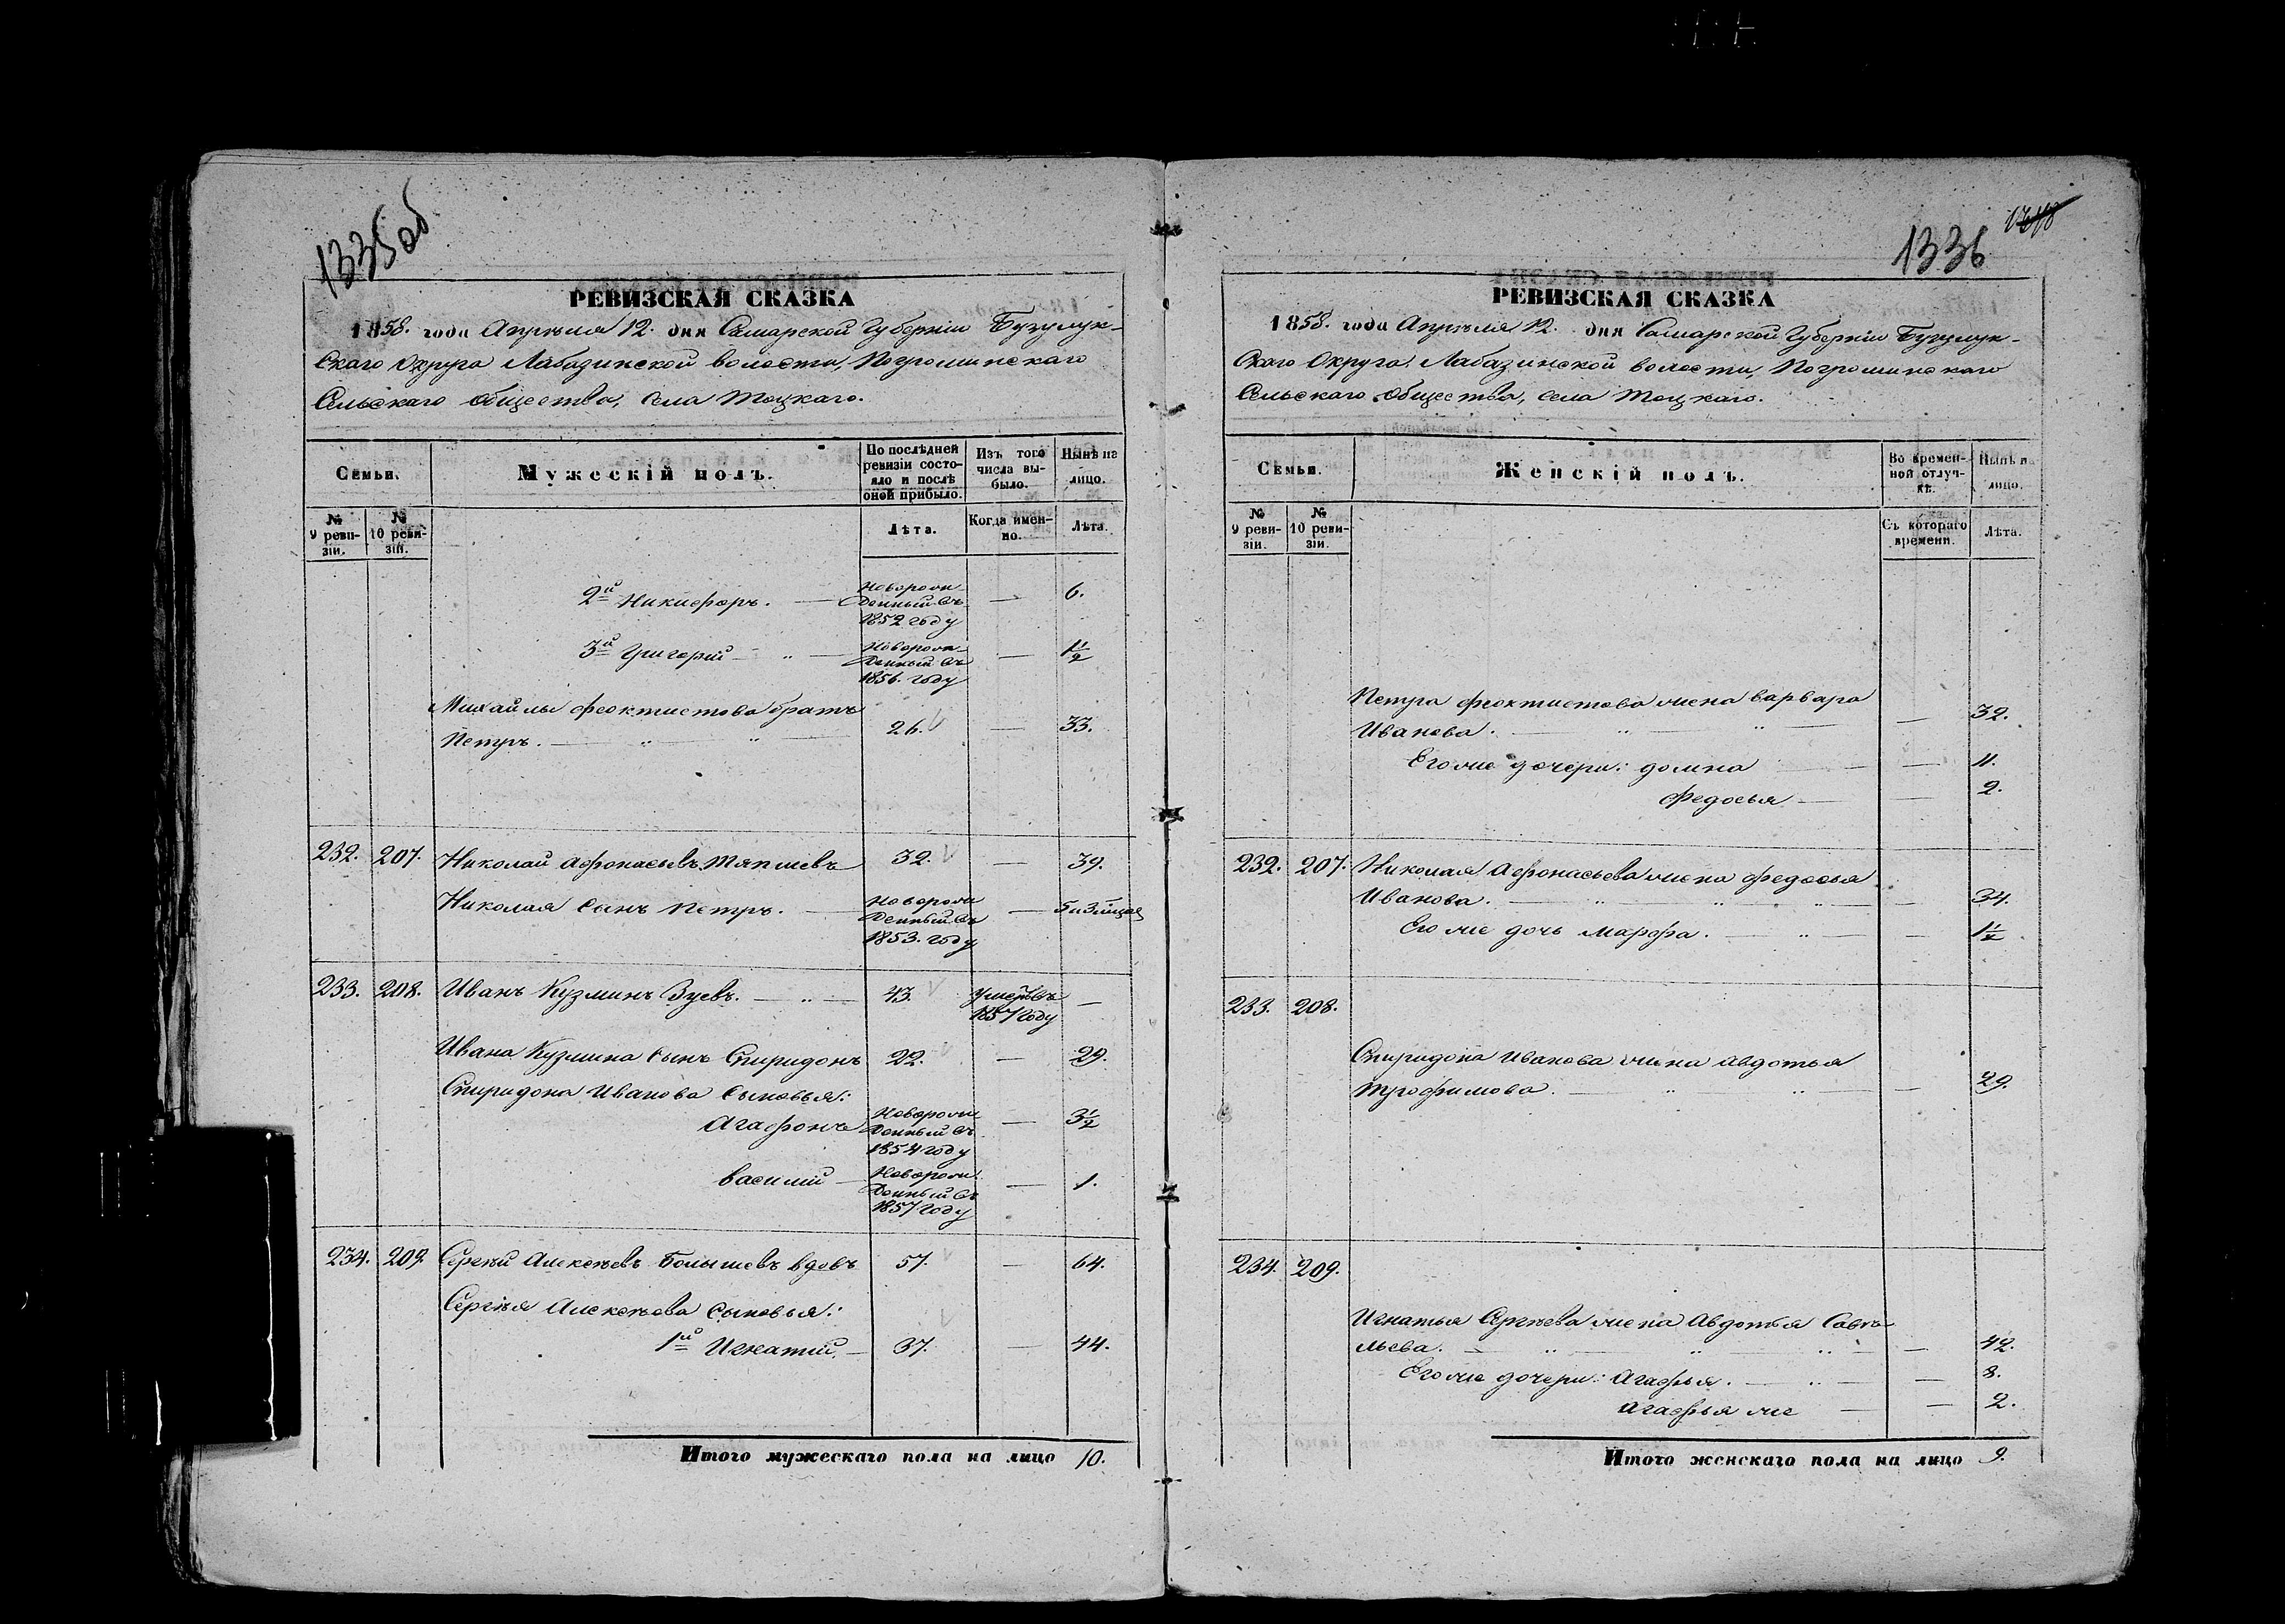 1335об
РЕВИЗСКАЯ СКАЗКА
1858. года Апрѣля 12. дня Самарской Губерніи Бузулук-
скаго Округа Лабазинской волости, Погроминскаго
Сельскаго общества, села Тоцкаго.
Семьи.
Мужескій полъ.
По послѣдней ревизіи состо-яло и послѣ оной прибыло.
Изъ того числа вы-было.
Нынѣ на лицо.
№ 9 реви-зіи.
№ 10 реви-зіи.
Лѣта.
Когда имен-но.
Лѣта.
2й Никифоръ. — Новорож-денный въ 1852 году — 6.
3й Григорій — Новорож-денный въ 1856. году — 1½
Михайлы Феоктистова братъ
Петръ. — 26. — 33.
232. 207. Николай Афонасьевъ Тяпшевъ 32. — 39.
Николая сынъ Петръ. — Новорож-денный въ 1853. году — 5 и 3 мѣсяц
233. 208. Иванъ Кузминъ Зуевъ. — 43. Умеръ въ 1857 году —
Ивана Кузмина сынъ Спиридонъ 22. — 29.
Спиридона Иванова сыновья:
Агафонъ Новорож-денный въ 1854 году — 3½
Василій — Новорож-денный въ 1857 году — 1.
234. 209. Сергѣй Алексѣевъ Болышевъ вдовъ 57. — 64.
Сергѣя Алексѣева сыновья:
1й Игнатій. — 37. — 44.
Итого мужескаго пола на лицо 10.
1336
РЕВИЗСКАЯ СКАЗКА
1858. года Апрѣля 12. дня Самарской Губерніи Бузулук-
скаго Округа Лабазинской волости, Погроминскаго
Сельскаго общества, села Тоцкаго.
Семьи.
Женскій полъ.
Во времен-ной отлуч-кѣ.
Нынѣ на лицо.
№ 9 реви-зіи.
№ 10 реви-зіи.
Съ котораго времени.
Лѣта.
Петра Феоктистова жена Варвара
Иванова. — 32.
Его же дочери: Домна — 11.
Федосья — 2.
232. 207. Николая Афонасьева жена Федосья
Иванова. — 34.
Его же дочь Марфа. — 1½
233. 208.
Спиридона Иванова жена Авдотья
Трофимова. — 29.
234. 209.
Игнатья Сергѣева жена Авдотья Савѣ-
льева. — 42.
Его же дочери: Агафья. — 8.
Агафья же — 2.
Итого женскаго пола на лицо 9.